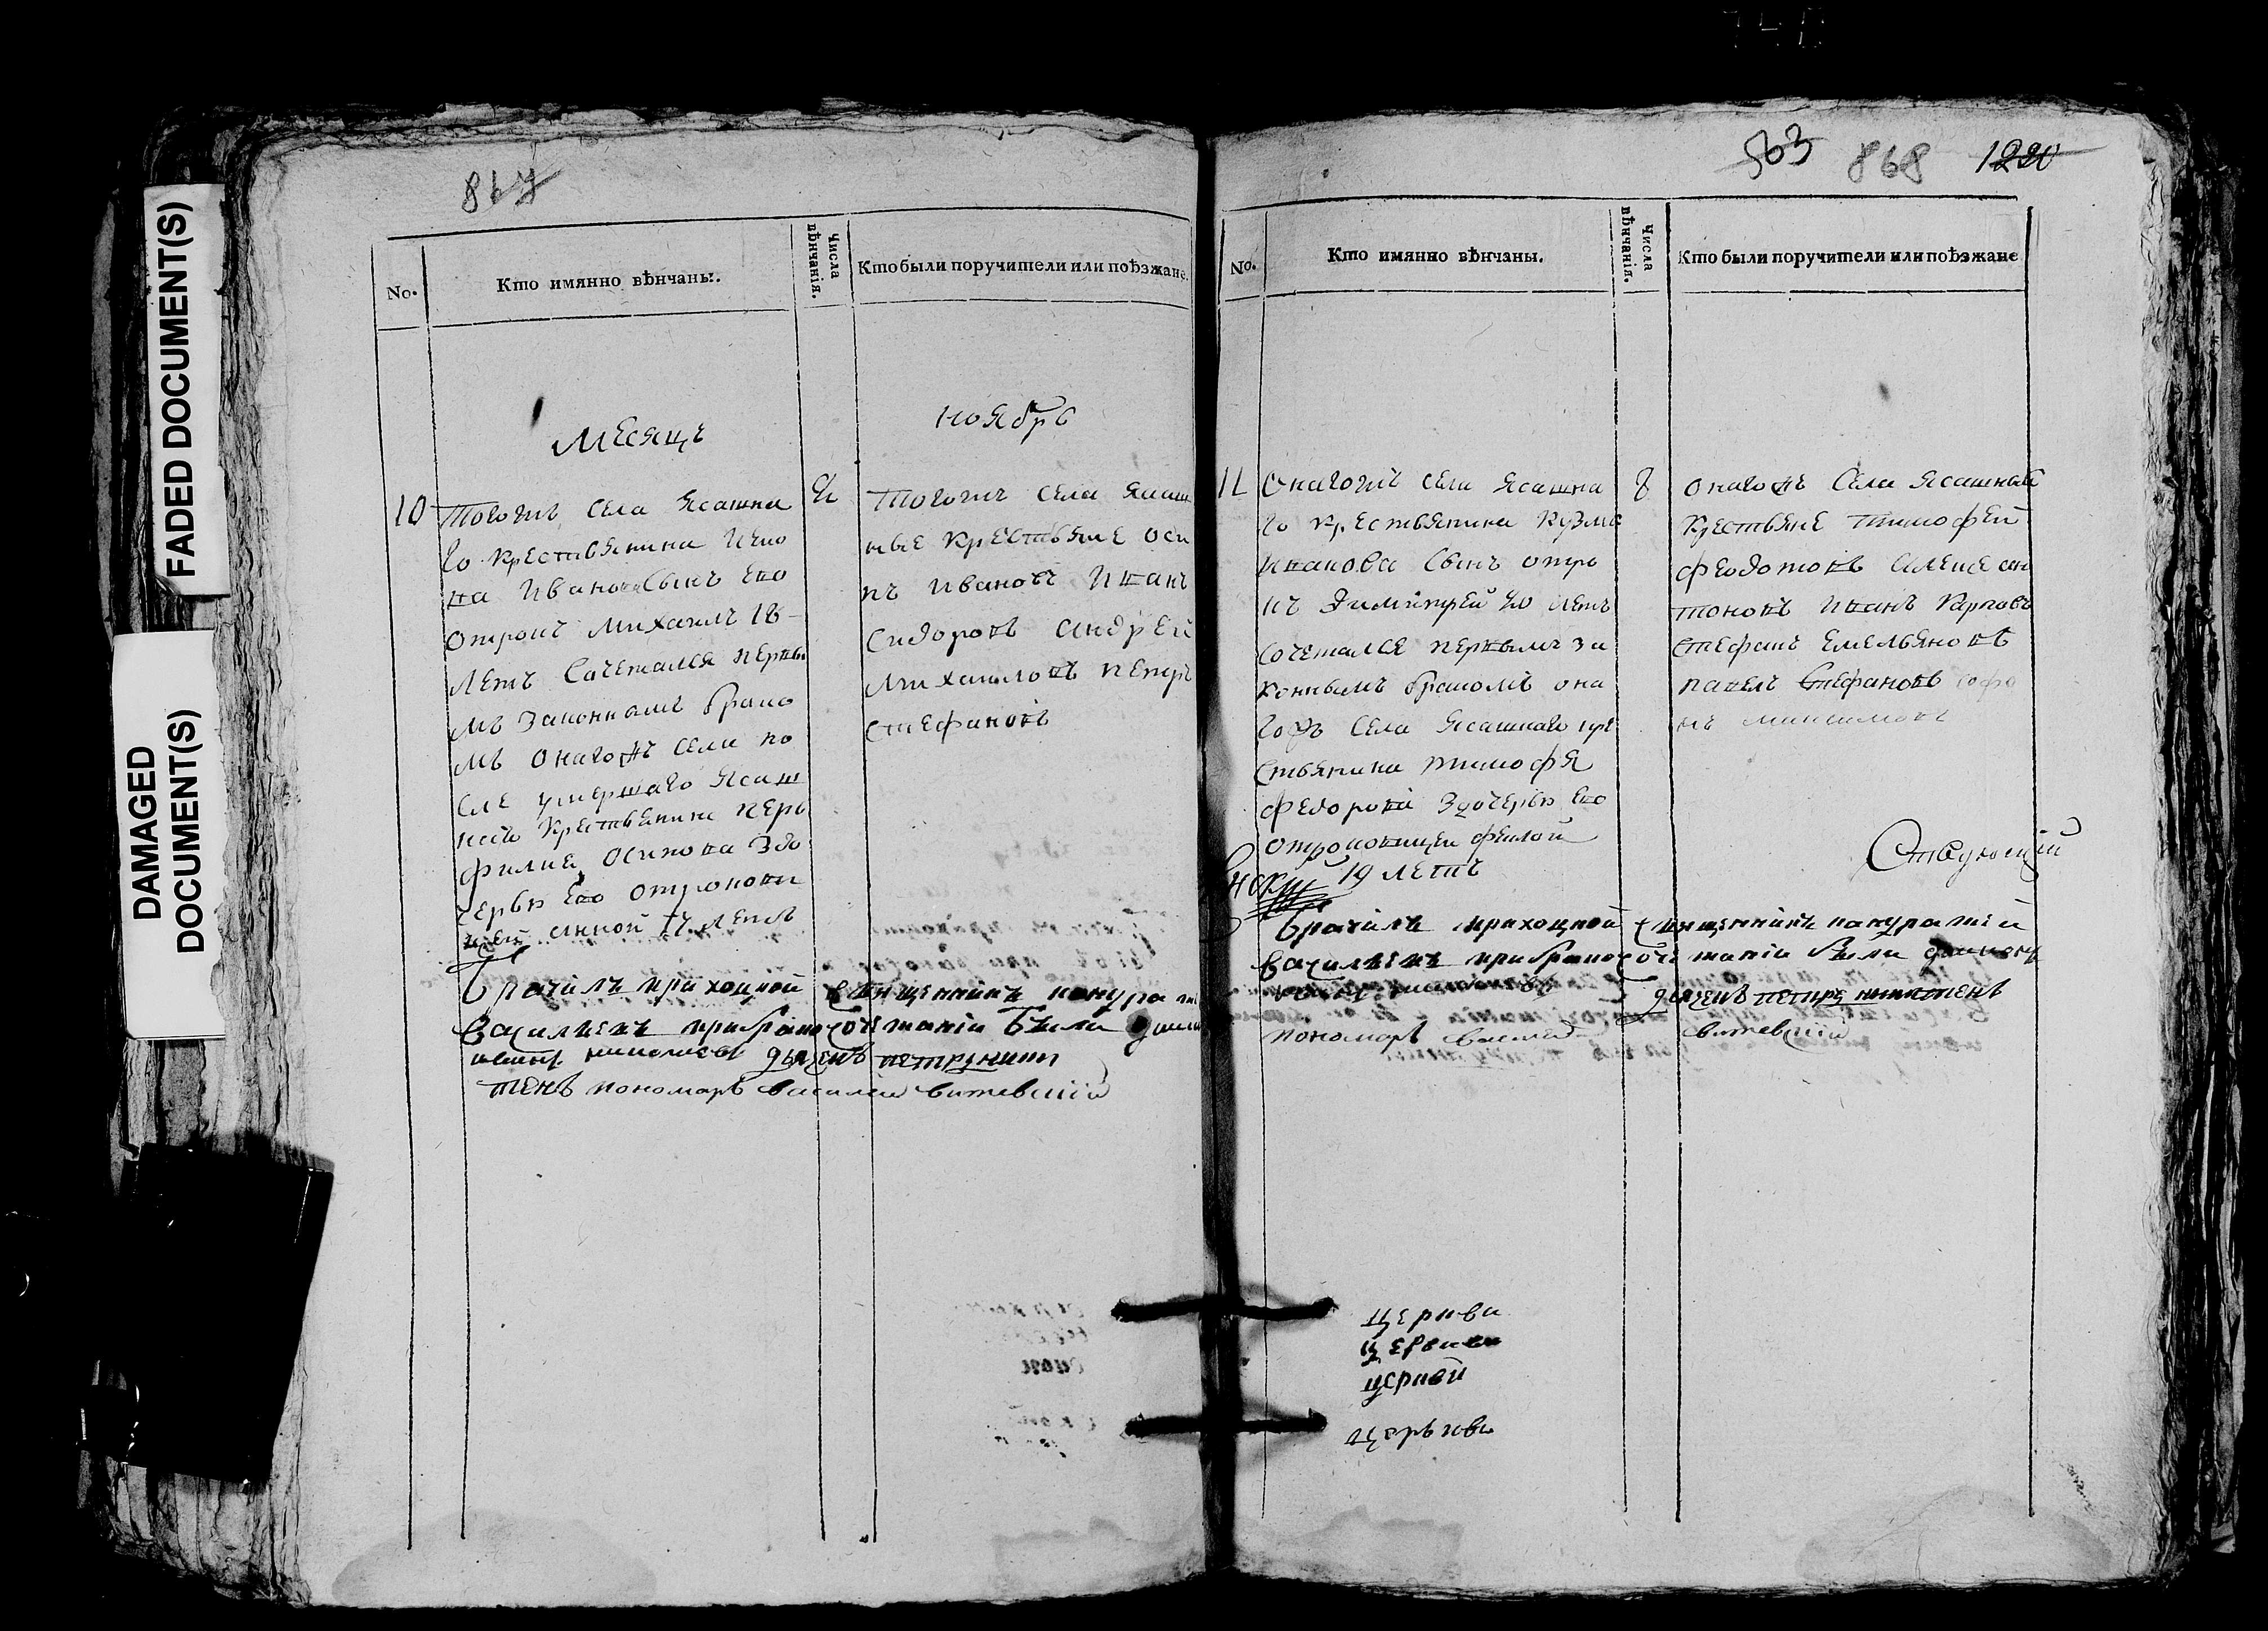 FADED DOCUMENT(S)
DAMAGED
DOCUMENT(S)
867
No.
Кто имянно вѣнчаны.
Числа
вѣнчанія.
Кто были поручители или поѣзжане.
Месяцъ
ноябрь
10
Тогожъ села Ясашна
го крестьянина
ва Иванова Сынъ Ево
отрокъ Михаилъ 18
летъ Сочетался первы
мъ законнымъ брако
мъ онагожъ села по
сле умершаго Ясаш
наго крестьянина Пер
филиа Осипова здо
черью Ево отрокови
цей Анной 17 летъ
Тогожъ села Ясаш
ные крестьяне Оси
пъ Ивановъ Иванъ
Сидоровъ Андрей
Михаиловъ Петръ
Стефановъ
Брачилъ приходной священникъ
Васильевъ при бракосочетаніи были
дьячекъ
пономарь Василей Витевскій
503 868 1220
No.
Кто имянно вѣнчаны.
Числа
вѣнчанія.
Кто были поручители или поѣзжане
11
Онагожъ села Ясашна
го крестьянина Кузмы
Иванова Сынъ отро
къ Димитрей 20 летъ
Сочетался первымъ за
коннымъ бракомъ она
гожъ Села Ясашнаго кре
стьянина Тимофея
Федорова здочерью Ево
отроковицей Феклой
19 летъ
8
онагожъ Села Ясашныя
крестьяне Тимофей
Феодотовъ Алексе Ан
тоновъ Иванъ Карповъ
Стефанъ Емельяновъ
Павелъ Стефановъ Софо
нъ Максимовъ
Брачилъ приходной священникъ
Васильевъ при бракосочетаніи были
дьячекъ
пономарь Василей Витевскій
церкви
церкви
церкви
церькви